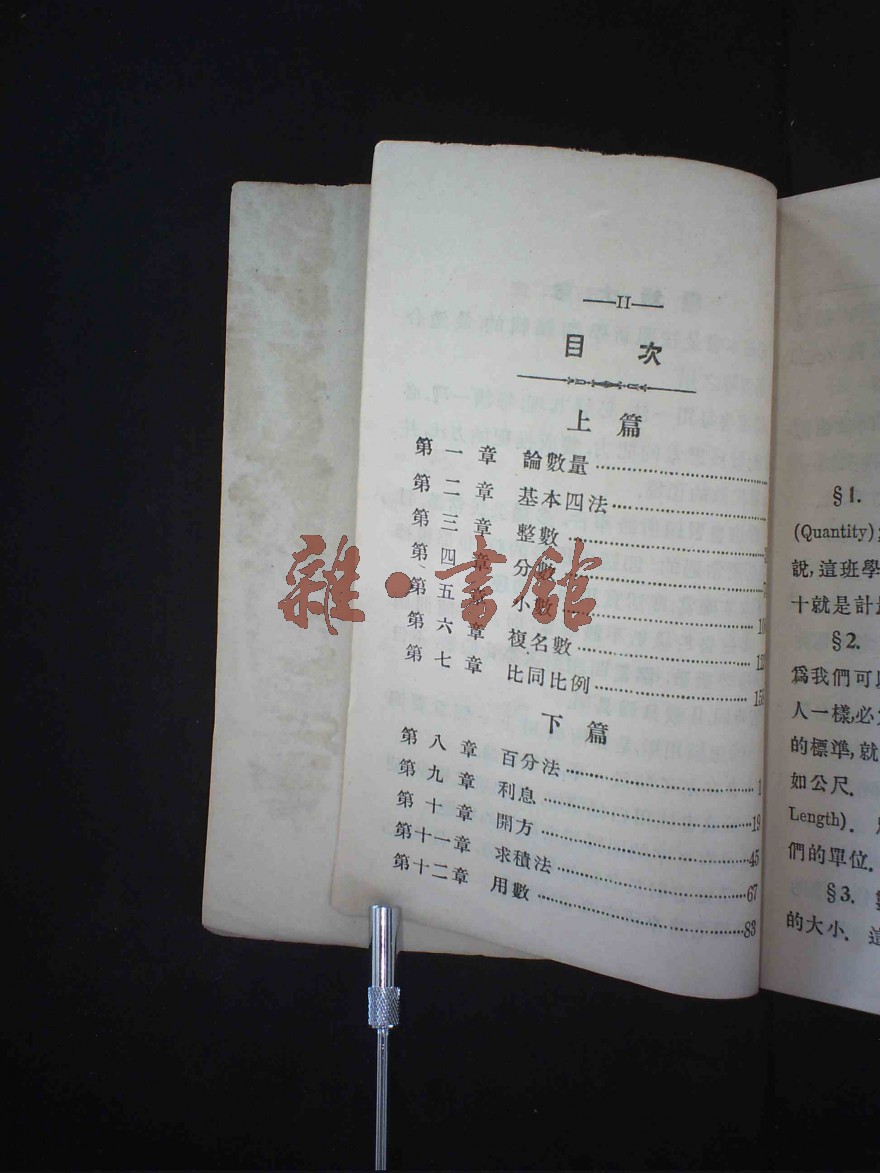 —II—
目 次
上篇
第一章 論數量
第二章 基本四法
第三章 整數
第四章 分數
第五章 小數
第六章 複名數
第七章 比同比例
下篇
第八章 百分法 1
第九章 利息 19
第十章 開方 45
第十一章 求積法 67
第十二章 用數 83
雜·書館
§1.
(Quantity)
說,這班學
十就是計
§2.
爲我們可
人一樣,必
的標準,就
如公尺.
Length).
們的單位.
§3.
的大小. 這